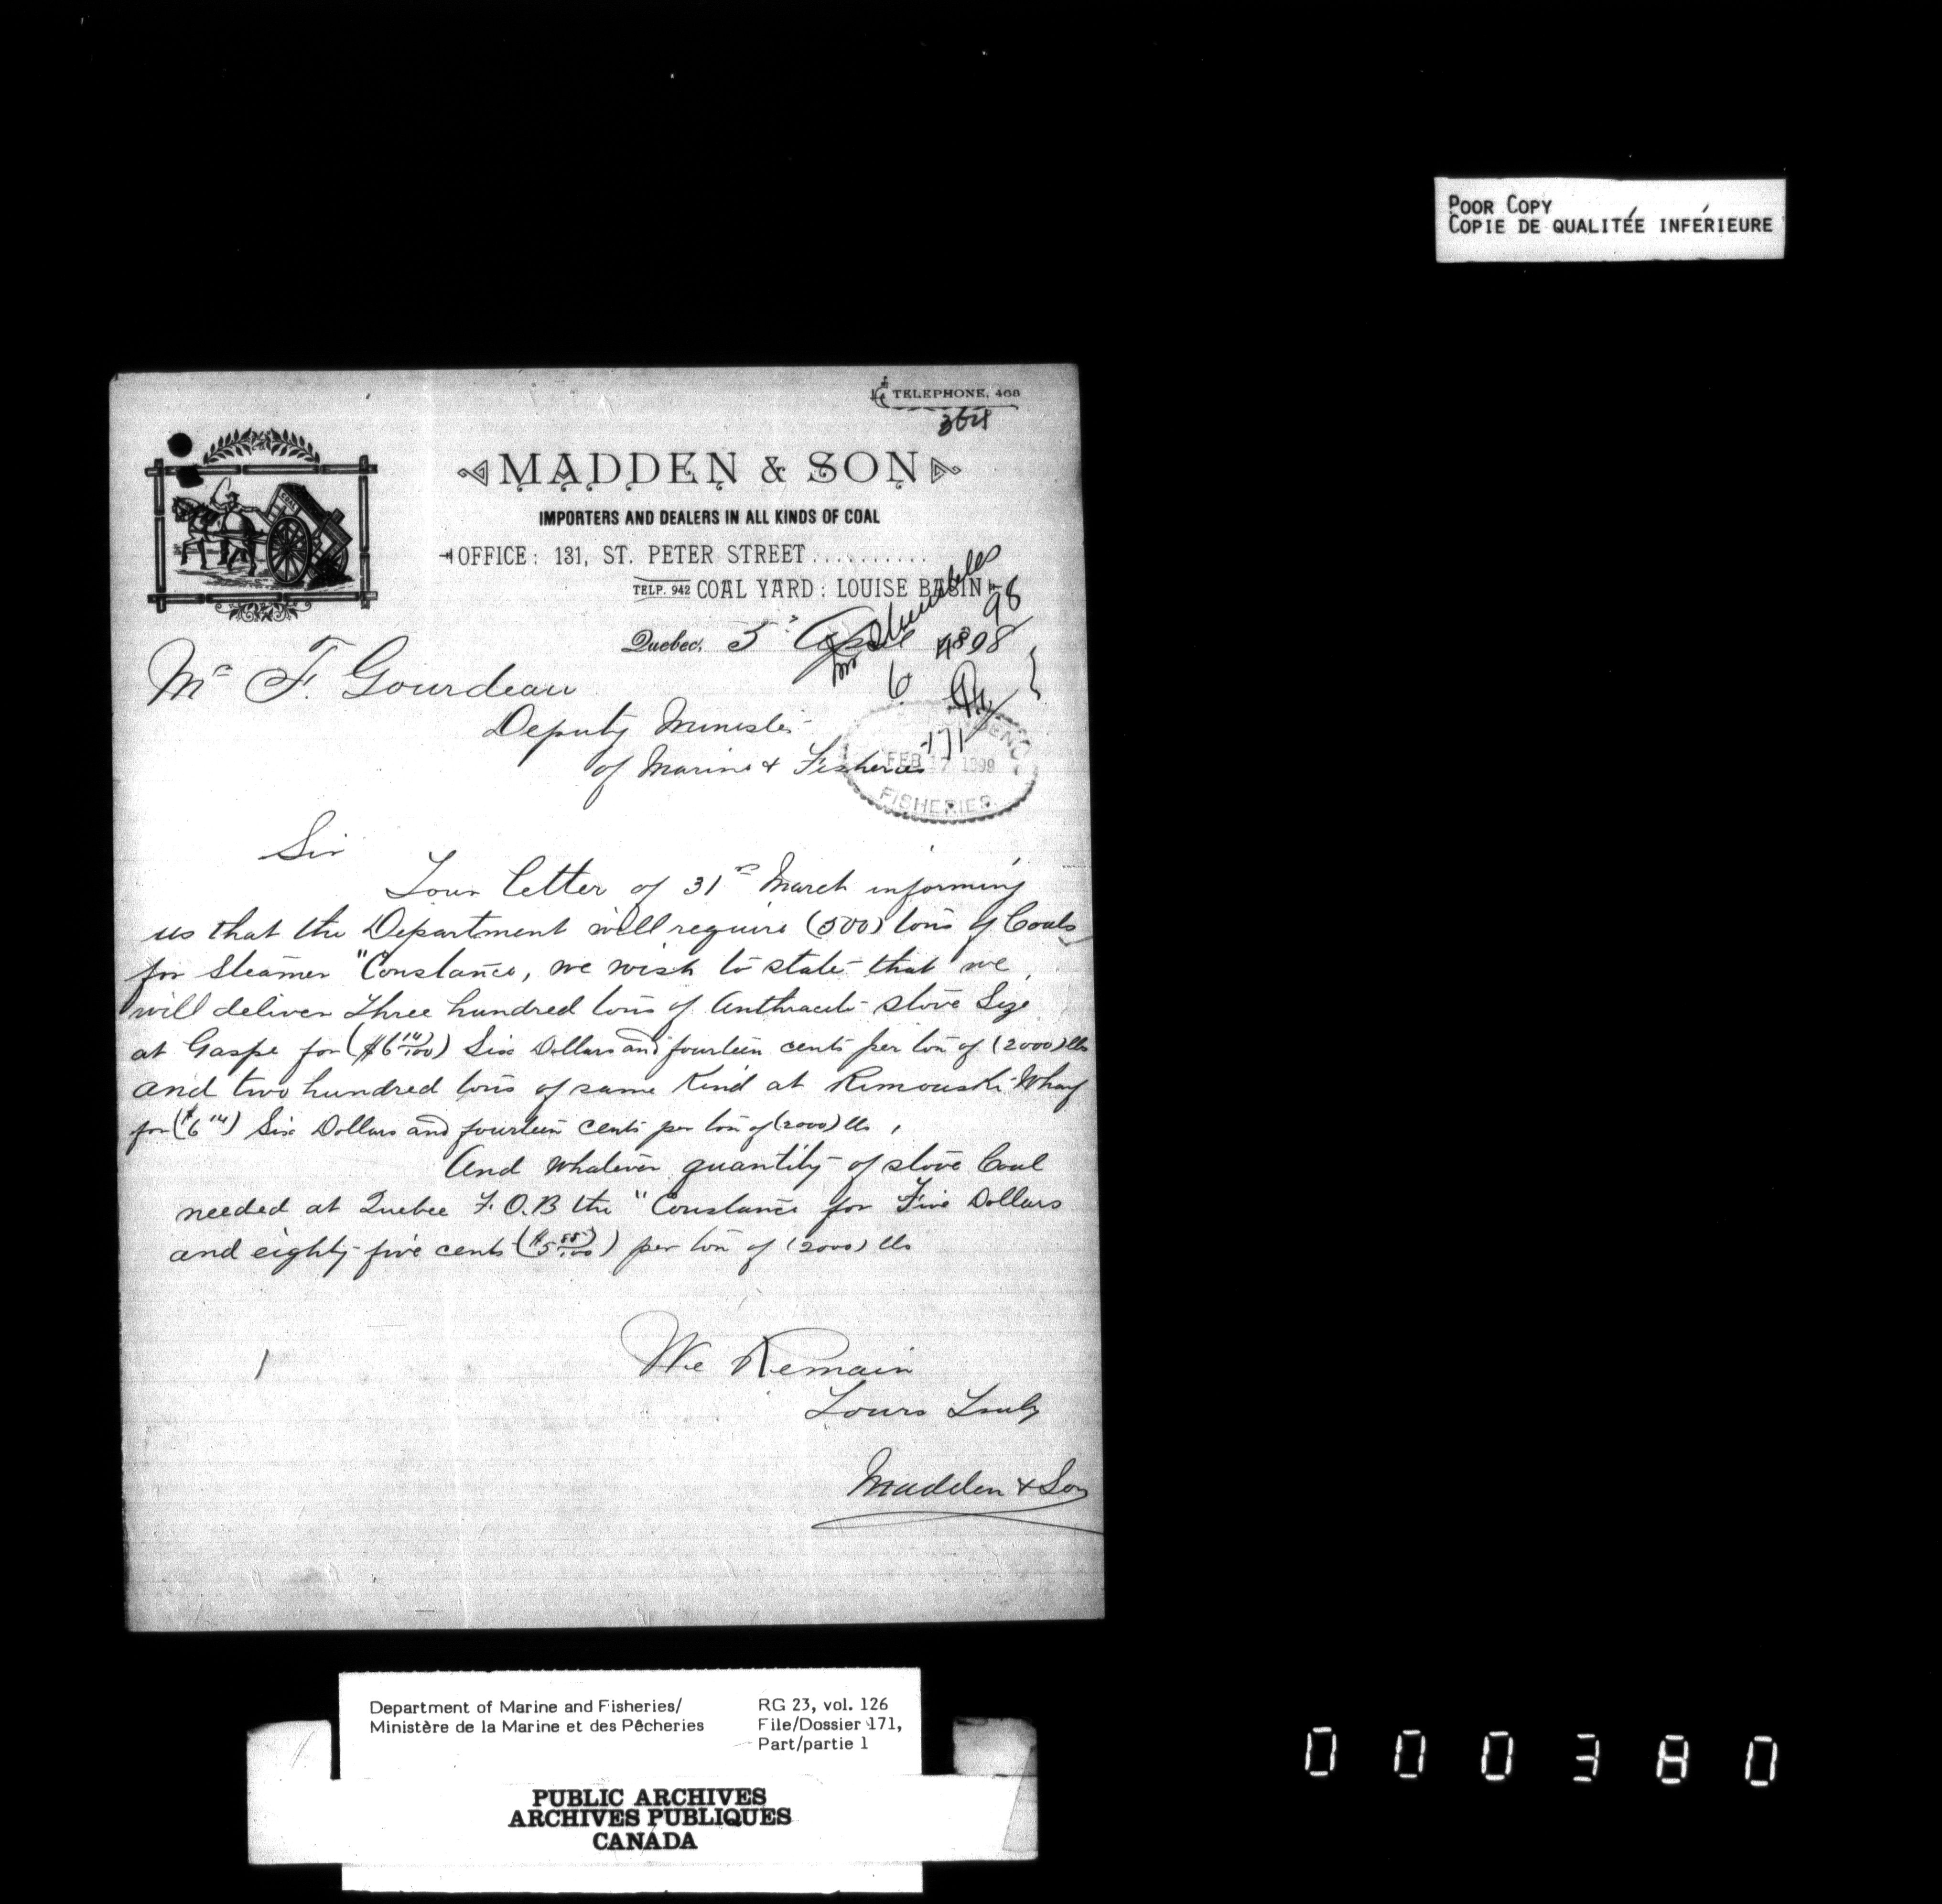 POOR COPY
COPIE DE QUALITÉE INFÉRIEURE
TELEPHONE, 468
MADDEN & SON
IMPORTERS AND DEALERS IN ALL KINDS OF COAL
COAL
OFFICE: 131, ST. PETER STREET..........
TELP. 942 COAL YARD: LOUISE BASIN
98
Quebec, 5 April 1898
6
Mr F. Gourdeau
Deputy Minister
171
of Marine & Fisheries
FEB 17 1899
FISHERIES.
Sir
Your letter of 31st March informing
us that the Department will require (500) tons of Coals
for Steamer "Constance, we wish to state that we
will deliver three hundred tons of Anthracite stove Size
at Gaspe for ($6 14/100) Six Dollars and fourteen cents per ton of (2000) lbs
and two hundred tons of same Kind at Rimouski Wharf
for ($6 14) Six Dollars and fourteen cents per ton of (2000) lbs,
And whatever quantity of stove Coal
needed at Quebec F.O.B the "Constance for Five Dollars
and eighty five cents ($5 85/100) per ton of (2000) lbs
We Remain
Yours Truly
Madden & Son
Department of Marine and Fisheries/
Ministère de la Marine et des Pêcheries
RG 23, vol. 126
File/Dossier 171,
Part/partie 1
PUBLIC ARCHIVES
ARCHIVES PUBLIQUES
CANADA
000380